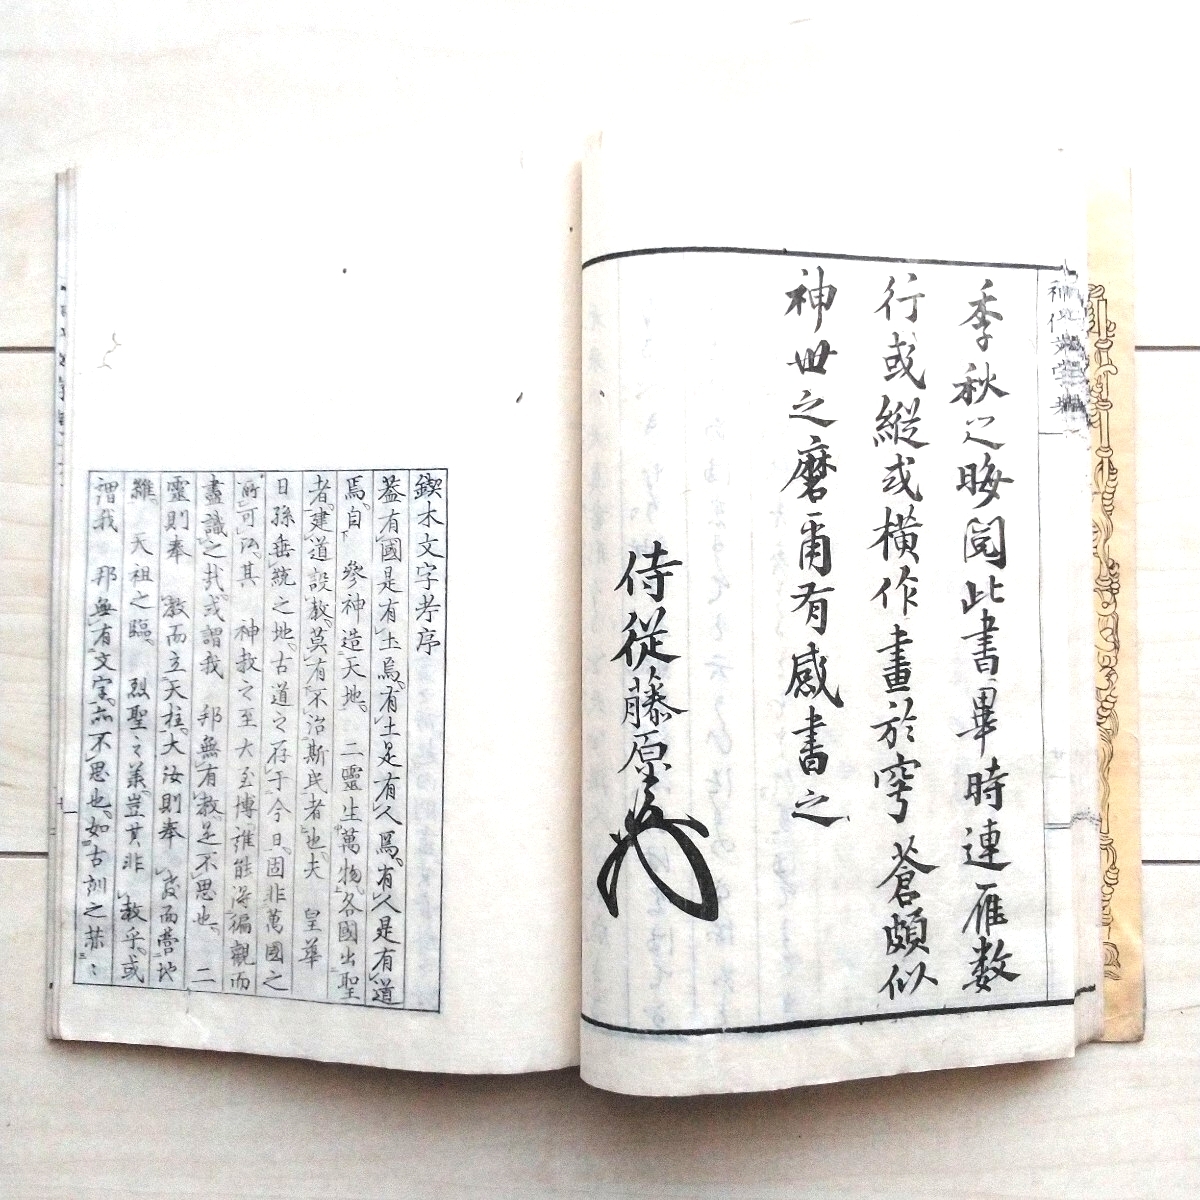 季秋之晦閲此書畢時連雁数
行或縦或横作畫於穹蒼頗似
神世之磨爾有感書之
侍從藤原
鍥木文字考序
蓋有國是有土焉有土是有人焉有人是有道
焉自 參神造天地 二靈生萬物各國出聖
者建道設教莫有不治斯民者也夫 皇華
日孫垂統之地古道之存于今日固非萬國之
所可以其 神教之至大至博誰能得徧觀而
盡識之哉或謂我 邦無有教是不思也 二
靈則奉 教而立天柱大汝則奉 教而營地
雖 天祖之臨 烈聖之美豈其非 教乎或
謂我 邦無有文字亦不思也如古訓之